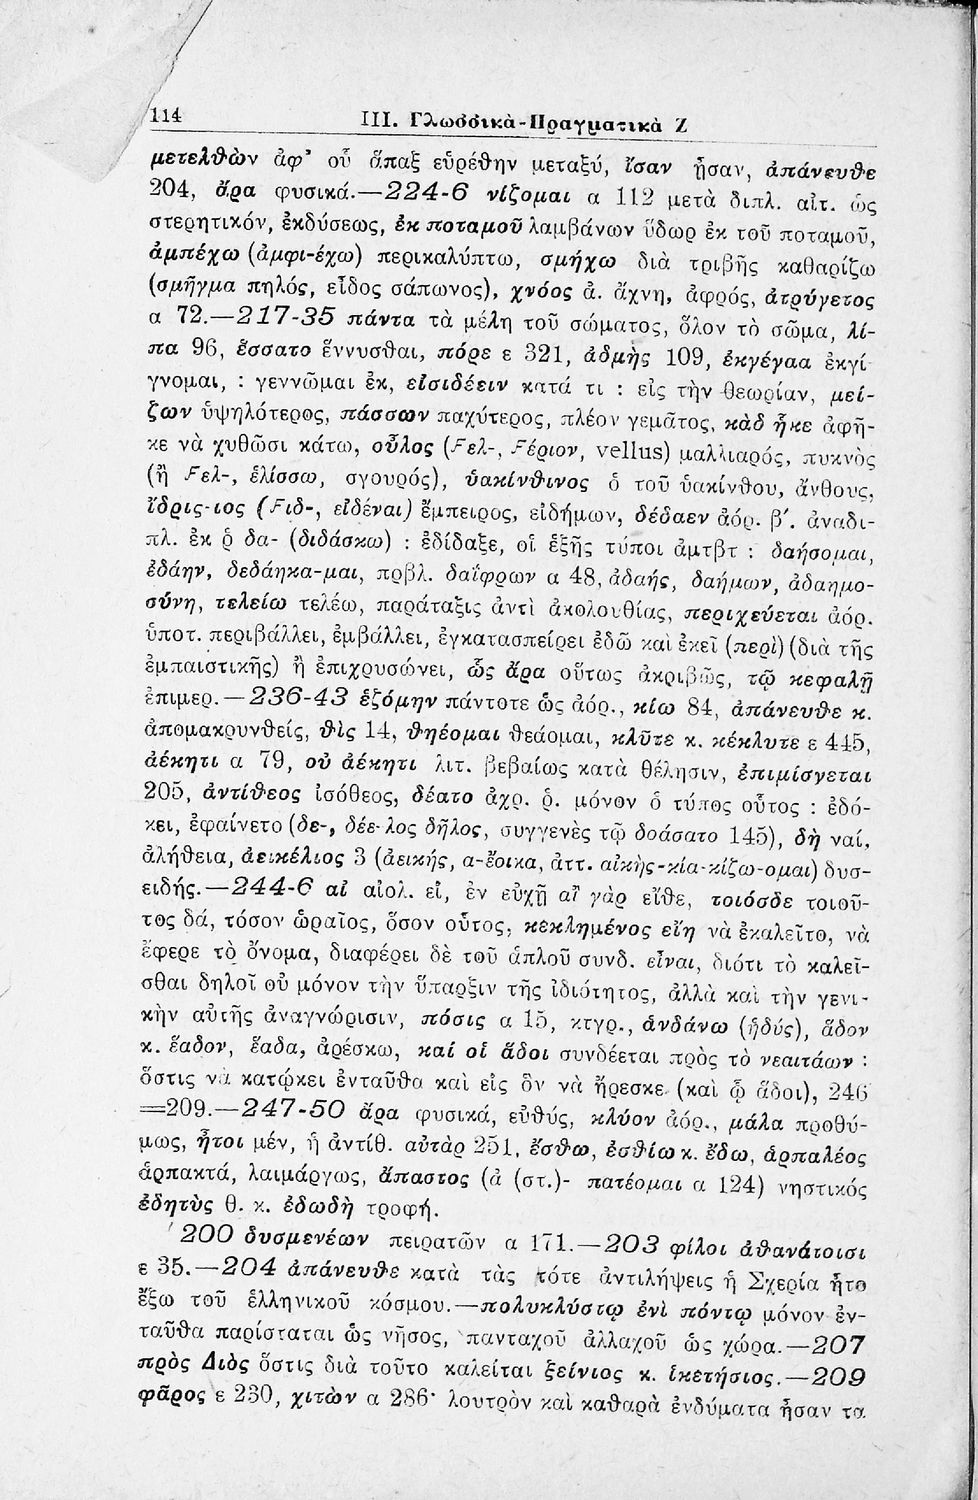 114 III. Γλωσσικὰ-Πραγματικὰ Ζ
μετελθὼν ἀφ’ οὗ ἅπαξ εὑρέθην μεταξύ, ἴσαν ἦσαν, ἀπάνευθε
204, ἄρα φυσικά.—224-6 νίζομαι α 112 μετὰ διπλ. αἰτ. ὡς
στερητικόν, ἐκδύσεως, ἐκ ποταμοῦ λαμβάνων ὕδωρ ἐκ τοῦ ποταμοῦ,
ἀμπέχω (ἀμφι-έχω) περικαλύπτω, σμήχω διὰ τριβῆς καθαρίζω
(σμῆγμα πηλός, εἶδος σάπωνος), χνόος ἀ. ἄχνη, ἀφρός, ἀτρύγετος
α 72.—217-35 πάντα τὰ μέλη τοῦ σώματος, ὅλον τὸ σῶμα, λί-
πα 96, ἕσσατο ἕννυσθαι, πόρε ε 321, ἀδμὴς 109, ἐκγέγαα ἐκγί
γνομαι, : γεννῶμαι ἐκ, εἰσιδέειν κατά τι : εἰς τὴν θεωρίαν, μεί-
ζων ὑψηλότερος, πάσσων παχύτερος, πλέον γεμᾶτος, κὰδ ἧκε ἀφῆ-
κε νὰ χυθῶσι κάτω, οὖλος (Ϝελ-, Ϝέριον, vellus) μαλλιαρός, πυκνὸς
(ἢ Ϝελ-, ἑλίσσω, σγουρός), ὑακίνθινος ὁ τοῦ ὑακίνθου, ἄνθους,
ἴδρις-ιος (Ϝιδ-, εἰδέναι) ἔμπειρος, εἰδήμων, δέδαεν ἀόρ. β′. ἀναδι-
πλ. ἐκ ῥ δα- (διδάσκω) : ἐδίδαξε, οἱ ἑξῆς τύποι ἀμτβτ : δαήσομαι,
ἐδάην, δεδάηκα-μαι, πρβλ. δαΐφρων α 48, ἀδαής, δαήμων, ἀδαημο-
σύνη, τελείω τελέω, παράταξις ἀντὶ ἀκολουθίας, περιχεύεται ἀόρ.
ὑποτ. περιβάλλει, ἐμβάλλει, ἐγκατασπείρει ἐδῶ καὶ ἐκεῖ (περὶ) (διὰ τῆς
ἐμπαιστικῆς) ἢ ἐπιχρυσώνει, ὣς ἄρα οὕτως ἀκριβῶς, τῷ κεφαλῇ
ἐπιμερ.—236-43 ἑζόμην πάντοτε ὡς ἀόρ., κίω 84, ἀπάνευθε κ.
ἀπομακρυνθείς, θὶς 14, θηέομαι θεάομαι, κλῦτε κ. κέκλυτε ε 445,
ἀέκητι α 79, οὐ ἀέκητι λιτ. βεβαίως κατὰ θέλησιν, ἐπιμίσγεται
205, ἀντίθεος ἰσόθεος, δέατο ἀχρ. ῥ. μόνον ὁ τύπος οὗτος : ἐδό-
κει, ἐφαίνετο (δε-, δέε-λος δῆλος, συγγενὲς τῷ δοάσατο 145), δὴ ναί,
ἀλήθεια, ἀεικέλιος 3 (ἀεικής, α-ἔοικα, ἀττ. αἰκὴς-κία-κίζω-ομαι) δυσ-
ειδής.—244-6 αἲ αἰολ. εἰ, ἐν εὐχῇ αἲ γὰρ εἴθε, τοιόσδε τοιοῦ-
τος δά, τόσον ὡραῖος, ὅσον οὗτος, κεκλημένος εἴη νὰ ἐκαλεῖτο, νὰ
ἔφερε τὸ ὄνομα, διαφέρει δὲ τοῦ ἁπλοῦ συνδ. εἶναι, διότι τὸ καλεῖ-
σθαι δηλοῖ οὐ μόνον τὴν ὕπαρξιν τῆς ἰδιότητος, ἀλλὰ καὶ τὴν γενι-
κὴν αὐτῆς ἀναγνώρισιν, πόσις α 15, κτγρ., ἁνδάνω (ἡδύς), ἅδον
κ. ἕαδον, ἕαδα, ἀρέσκω, καί οἱ ἅδοι συνδέεται πρὸς τὸ νεαιτάων :
ὅστις νὰ κατῴκει ἐνταῦθα καὶ εἰς ὃν νὰ ἤρεσκε (καὶ ᾧ ἅδοι), 246
=209.—247-50 ἄρα φυσικά, εὐθύς, κλύον ἀόρ., μάλα προθύ-
μως, ἦτοι μέν, ἡ ἀντίθ. αὐτὰρ 251, ἔσθω, ἐσθίω κ. ἔδω, ἁρπαλέος
ἁρπακτά, λαιμάργως, ἄπαστος (ἀ (στ.)- πατέομαι α 124) νηστικός
ἐδητὺς θ. κ. ἐδωδὴ τροφή.
200 δυσμενέων πειρατῶν α 171.—203 φίλοι ἀθανάτοισι
ε 35.—204 ἀπάνευθε κατὰ τὰς τότε ἀντιλήψεις ἡ Σχερία ἦτο
ἔξω τοῦ ἑλληνικοῦ κόσμου.—πολυκλύστῳ ἐνὶ πόντῳ μόνον ἐν-
ταῦθα παρίσταται ὡς νῆσος, πανταχοῦ ἀλλαχοῦ ὡς χώρα.—207
πρὸς Διὸς ὅστις διὰ τοῦτο καλεῖται ξείνιος κ. ἱκετήσιος.—209
φᾶρος ε 230, χιτὼν α 286· λουτρὸν καὶ καθαρὰ ἐνδύματα ἦσαν τα